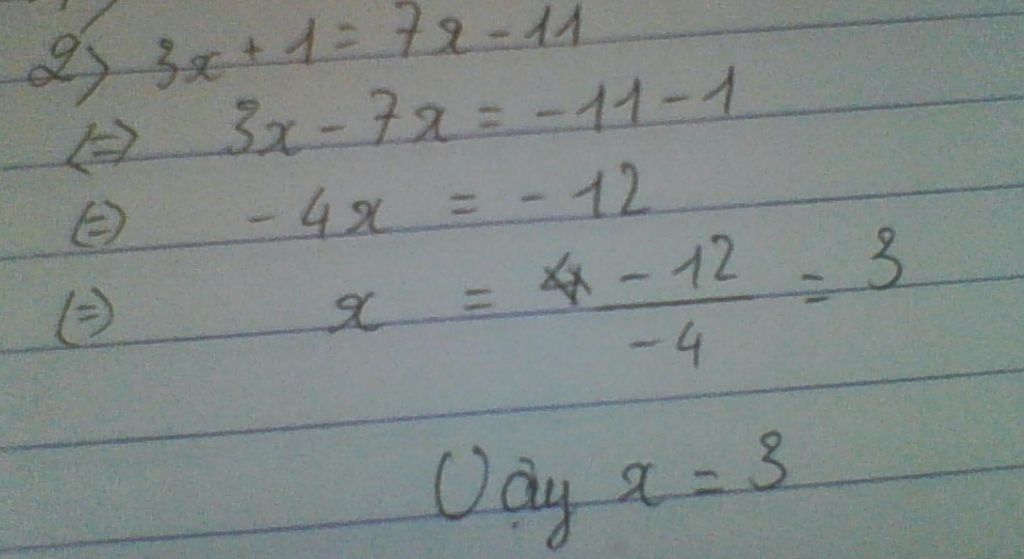 2) 3x + 1 = 7x - 11
(=) 3x - 7x = -11 - 1
(=) -4x = -12
(=) x = -12/-4 = 3
Vậy x = 3